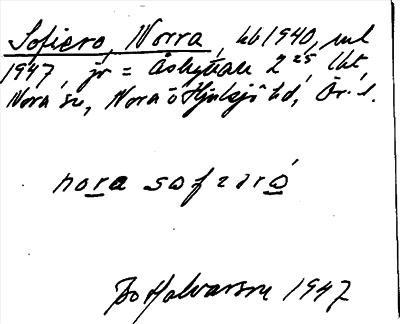 Sofiero, Norra, kb 1940, rul
1947, jr = Åskytteale 2²⁵, lht,
Nora sn, Nora o Hjulsjö hd, Ör. l.
nora sofzaró
Bo Halvarson 1947